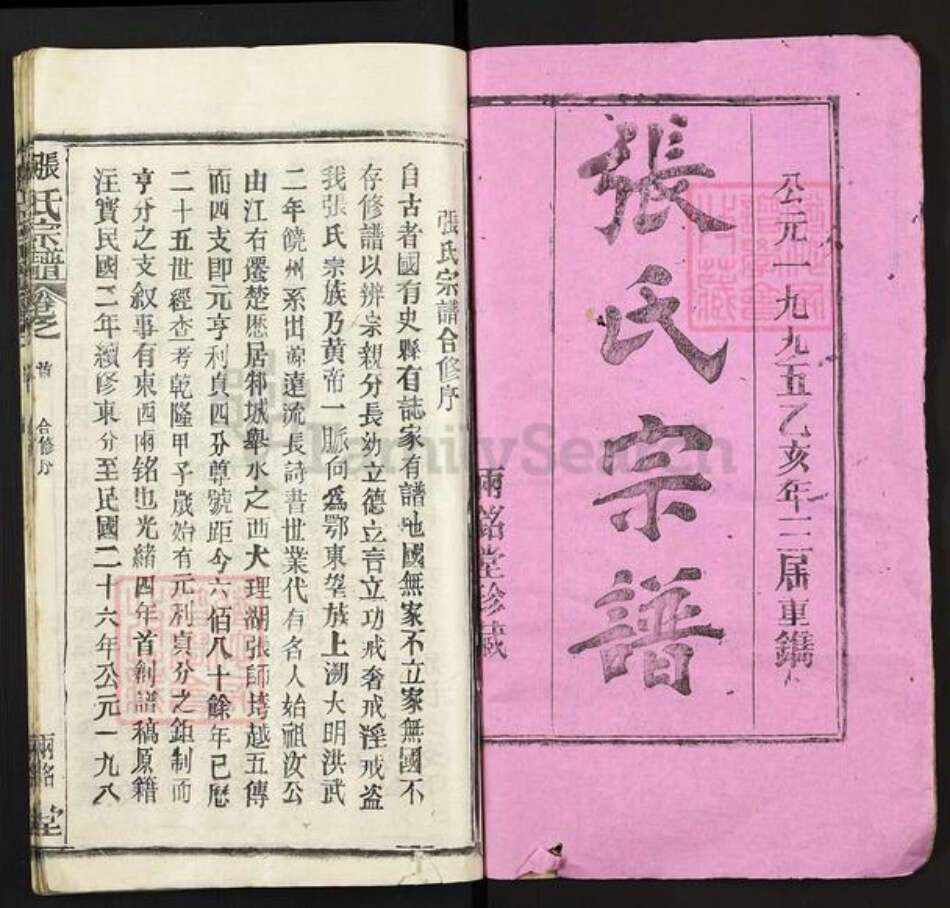 公元一九九五乙亥年三届重鐫
張氏宗譜
兩銘堂珍藏
張氏宗譜合修序
自古者國有史縣有誌家有譜也國無家不立家無國不
存修譜以辨宗親分長幼立德立言立功戒奢戒淫戒盜
我張氏宗族乃黄帝一脈向爲鄂東望族上溯大明洪武
二年饒州系出源遠流長詩書世業代有名人始祖汝公
由江右遷楚歷居邾城舉水之西大理湖張師塆越五傳
而四支即元亨利貞四分尊號距今六佰八十餘年已歷
二十五世經查考乾隆甲子歲始有元利貞分之鉅制而
亨分之支叙事有東西兩銘也光緒四年首創譜稿原籍
汪寳民國二年續修東分至民國二十六年公元一九八
張氏宗譜
卷之
首
合修序
兩銘堂
FamilySearch